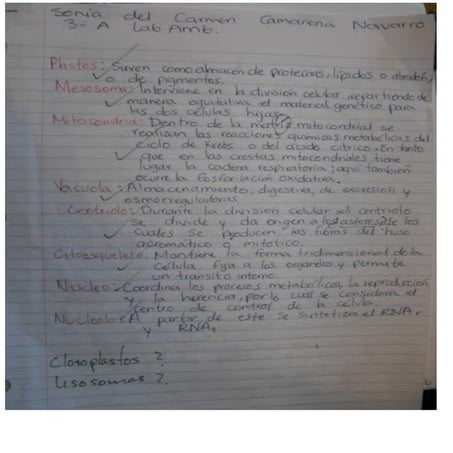 Sonia del Carmen Camarena Navarro
3-A Lab. Amb.
Plastos: Sirven como almacén de proteínas, lípidos o almidón,
o de pigmentos.
Mesosoma: Interviene en la división celular repartiendo de
manera equitativa el material genético para
las dos células hijas.
Mitocondria: Dentro de la matriz mitocondrial se
realizan las reacciones químicas metabólicas del
ciclo de Krebs o del ácido cítrico. En tanto
que en las crestas mitocondriales tiene
lugar la cadena respiratoria; aquí también
ocurre la fosforilación oxidativa.
Vacuola: Almacenamiento, digestiva, de excreción y
osmorreguladoras
Centriolo: Durante la division celular el centriolo
se divide y da origen a los asteres de los
cuales se producen las fibras del huso
acromático o mitótico.
Citoesqueleto: Mantiene la forma tridimensional de la
célula fija a los organelos y permite
un transito interno.
Núcleo: Coordina los procesos metabólicos, la reproducción
y la herencia, por lo cual se considera el
centro de control de la célula.
Nucleolo: A partir de este se sintetiza el RNAr
y RNAt
Cloroplastos ?
Lisosomas ?